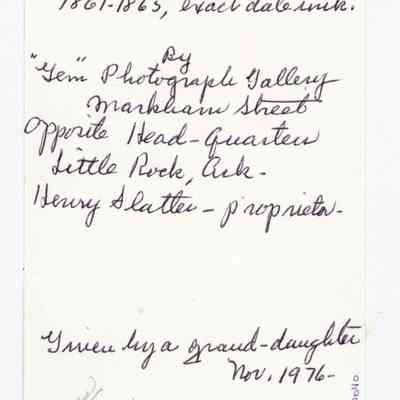 1861-1865, exact date unk.
By
"Gem" Photograph Gallery
Markham Street
Opposite Head-Quarters
Little Rock, Ark-
Henry Slatter - proprietor-
Given by a grand-daughter
Nov. 1976-